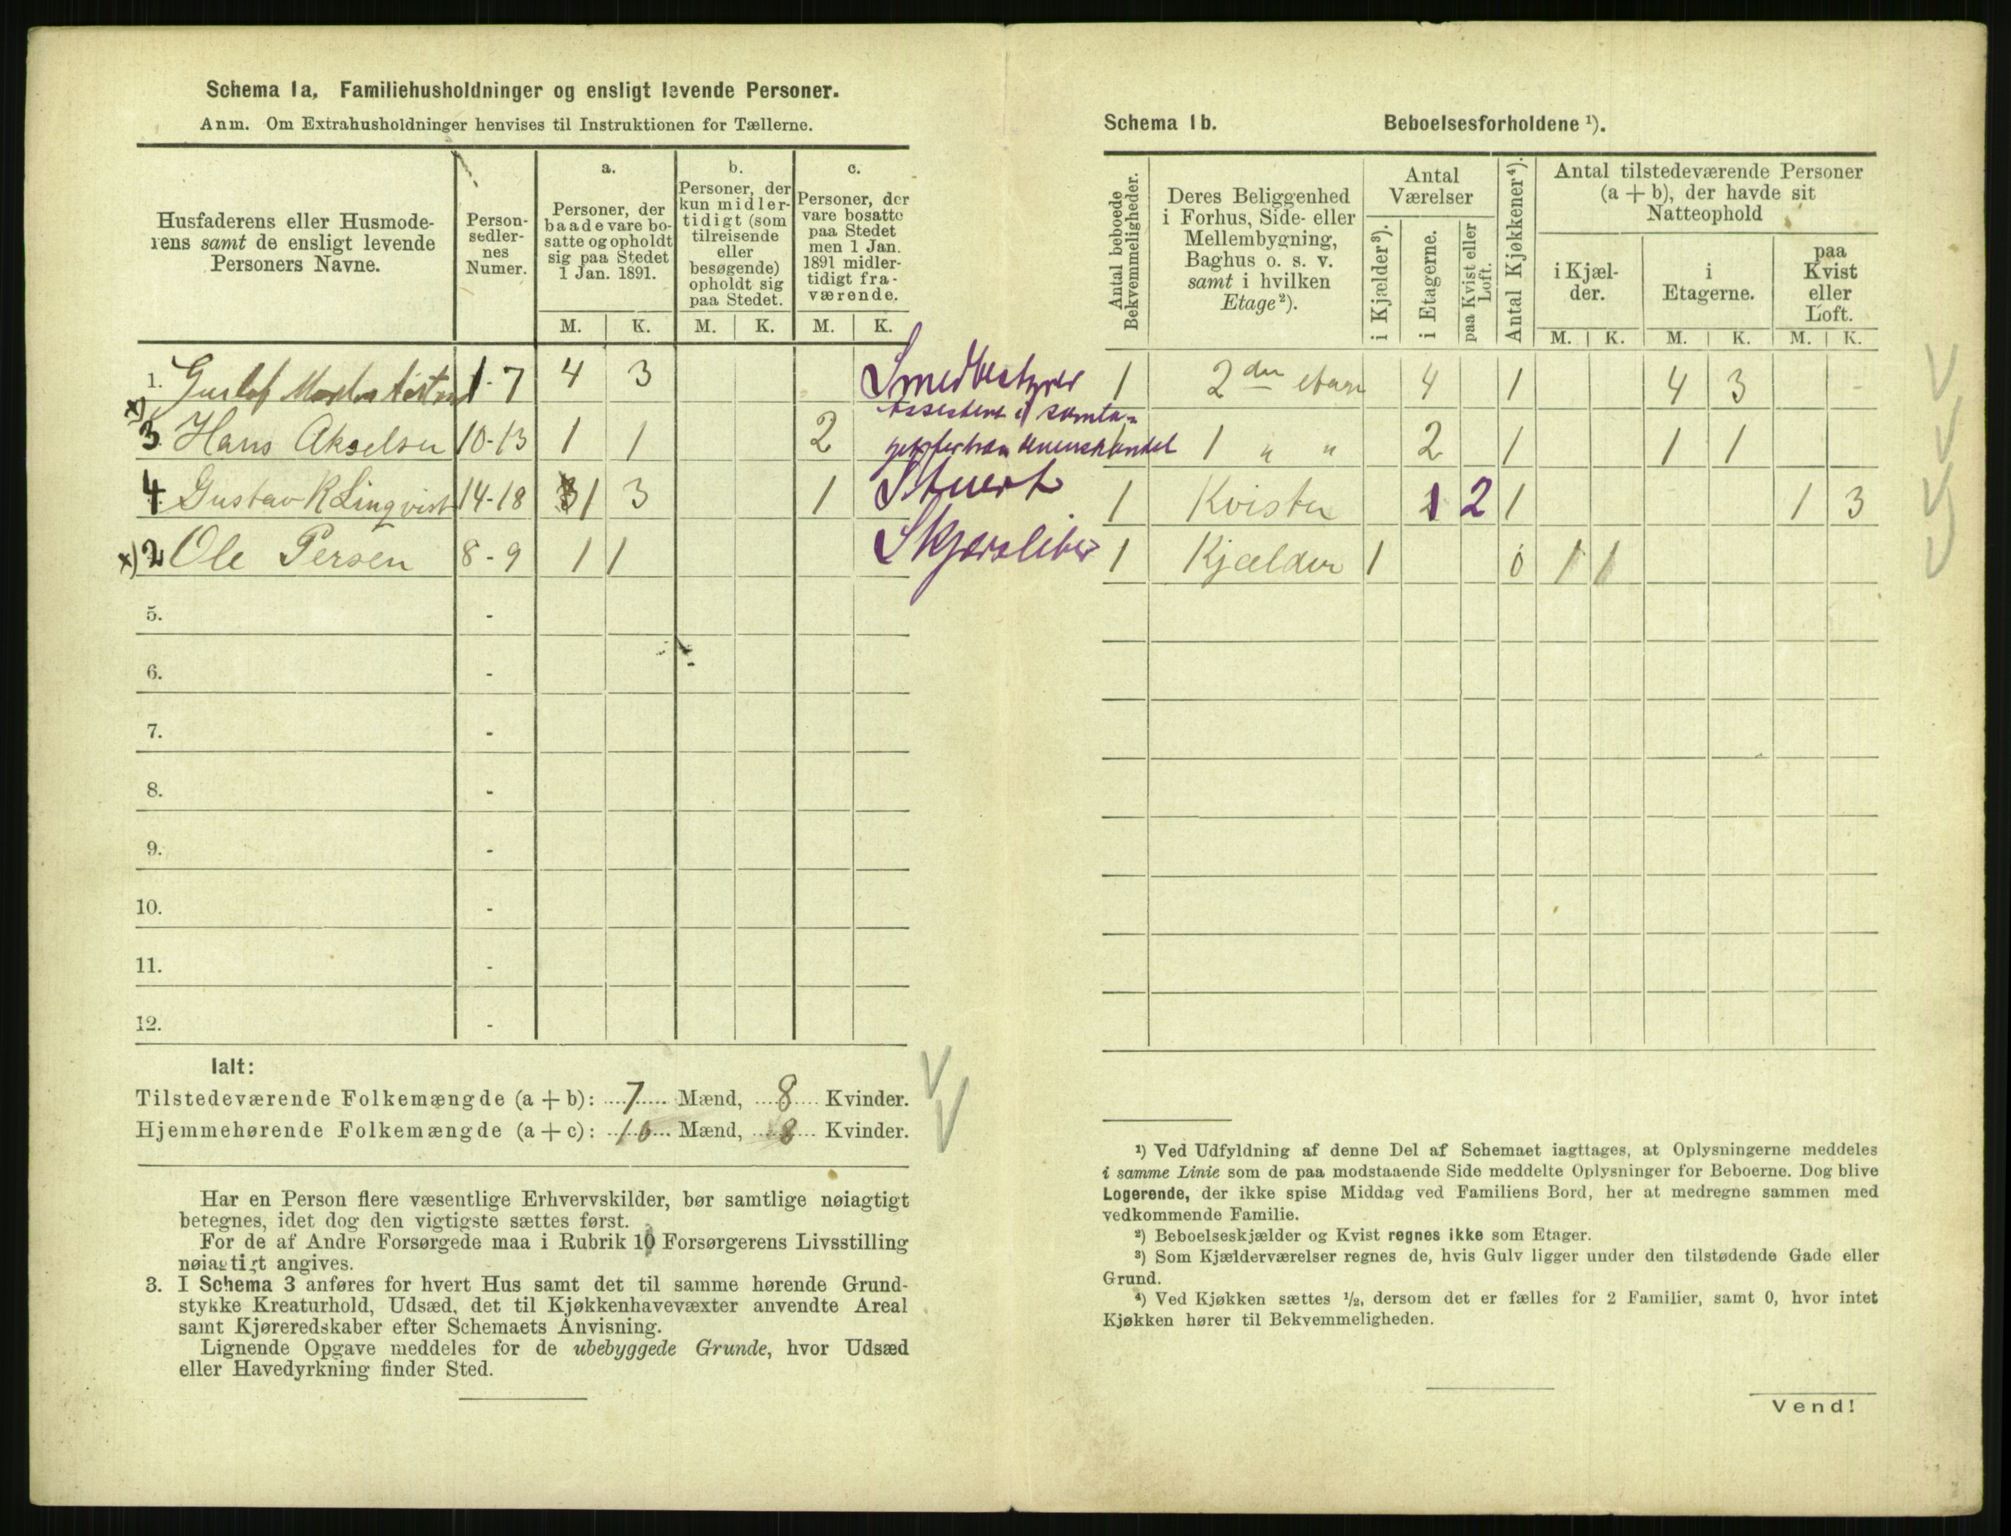 Schema 1a, Familiehusholdninger og ensligt levende Personer.
Anm. Om Extrahusholdninger henvises til Instruktionen for Tællerne.
Husfaderens eller Husmode-
rens samt de ensligt levende
Personers Navne.
Person-
sedler-
nes
Numer.
a.
Personer, der
baade vare bo-
satte og opholdt
sig paa Stedet
1 Jan. 1891.
M. K.
b.
Personer, der
kun midler-
tidigt (som
tilreisende
eller
besøgende)
opholdt sig
paa Stedet.
M. K.
c.
Personer, der
vare bosatte
paa Stedet
men 1 Jan.
1891 midler-
tidigt fra-
værende.
M. K.
1. Gustaf 1-7 4 3
x) 3 Hans Akselsen 10-13 1 1 2
4 Gustav R Linqvist 14-18 1 3 1 Stuert
x) 2 Ole Persen 8-9 1 1
5. -
6. -
7. -
8. -
9. -
10. -
11. -
12. -
Ialt:
Tilstedeværende Folkemængde (a + b): 7 Mænd, 8 Kvinder.
Hjemmehørende Folkemængde (a + c): 10 Mænd, 8 Kvinder.
Har en Person flere væsentlige Erhvervskilder, bør samtlige nøiagtigt
betegnes, idet dog den vigtigste sættes først.
For de af Andre Forsørgede maa i Rubrik 10 Forsørgerens Livsstilling
nøiagtigt angives.
3. I Schema 3 anføres for hvert Hus samt det til samme hørende Grund-
stykke Kreaturhold, Udsæd, det til Kjøkkenhavevæxter anvendte Areal
samt Kjøreredskaber efter Schemaets Anvisning.
Lignende Opgave meddeles for de ubebyggede Grunde, hvor Udsæd
eller Havedyrkning finder Sted.
Schema 1b. Beboelsesforholdene ¹).
Antal beboede
Bekvemmeligheder.
Deres Beliggenhed
i Forhus, Side- eller
Mellembygning,
Baghus o. s. v.
samt i hvilken
Etage²).
Antal
Værelser
i Kjælder³).
i Etagerne.
paa Kvist eller
Loft.
Antal Kjøkkener⁴).
Antal tilstedeværende Personer
(a + b), der havde sit
Natteophold
i Kjæl-
der.
M. K.
i
Etagerne.
M. K.
paa
Kvist
eller
Loft.
M. K.
1 2den etage 4 1 4 3 -
1 " " 2 1 1 1
1 Kvisten 1 2 1 1 3
1 Kjælder 1 0 1 1
¹) Ved Udfyldning af denne Del af Schemaet iagttages, at Oplysningerne meddeles
i samme Linie som de paa modstaaende Side meddelte Oplysninger for Beboerne. Dog blive
Logerende, der ikke spise Middag ved Familiens Bord, her at medregne sammen med
vedkommende Familie.
²) Beboelseskjælder og Kvist regnes ikke som Etager.
³) Som Kjælderværelser regnes de, hvis Gulv ligger under den tilstødende Gade eller
Grund.
⁴) Ved Kjøkken sættes ½, dersom det er fælles for 2 Familier, samt 0, hvor intet
Kjøkken hører til Bekvemmeligheden.
Vend!